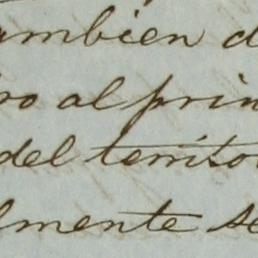 ambien d
ro al prin
del territo
lmente se